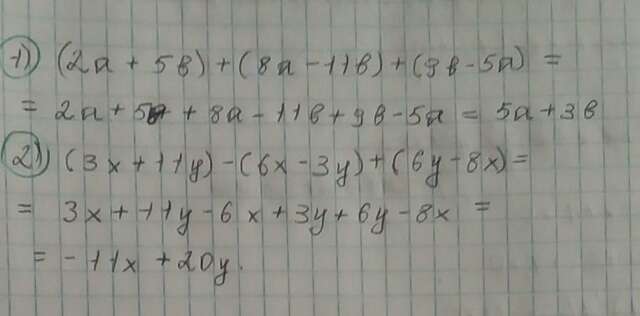 1) (2a + 5в) + (8a - 11в) + (9в - 5a) =
= 2a + 5в + 8a - 11в + 9в - 5a = 5a + 3в
2) (3x + 11y) - (6x - 3y) + (6y - 8x) =
= 3x + 11y - 6x + 3y + 6y - 8x =
= -11x + 20y.